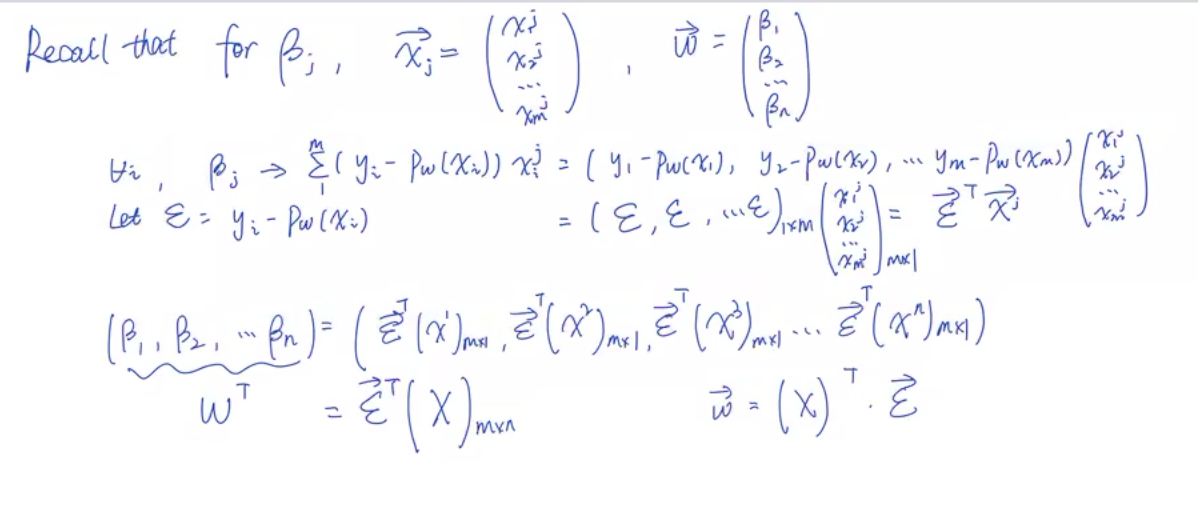 Recall that for βⱼ, x⃗ⱼ = (x₁ʲ x₂ʲ ... xₘʲ), w⃗ = (β₁ β₂ ... βₙ)
∀i, βⱼ → Σ₁ᵐ (yᵢ - Pw(xᵢ)) xᵢʲ = (y₁ - Pw(x₁), y₂ - Pw(x₂), ... yₘ - Pw(xₘ)) (x₁ʲ x₂ʲ ... xₘʲ)
Let ε = yᵢ - Pw(xᵢ) = (ε, ε, ... ε)₁ₓₘ (x₁ʲ x₂ʲ ... xₘʲ)ₘₓ₁ = ε⃗ᵀ x⃗ʲ
(β₁, β₂, ... βₙ) = (ε⃗ᵀ(x¹)ₘₓ₁, ε⃗ᵀ(x²)ₘₓ₁, ε⃗ᵀ(x³)ₘₓ₁ ... ε⃗ᵀ(xⁿ)ₘₓ₁)
wᵀ = ε⃗ᵀ(X)ₘₓₙ w⃗ = (X)ᵀ · ε⃗